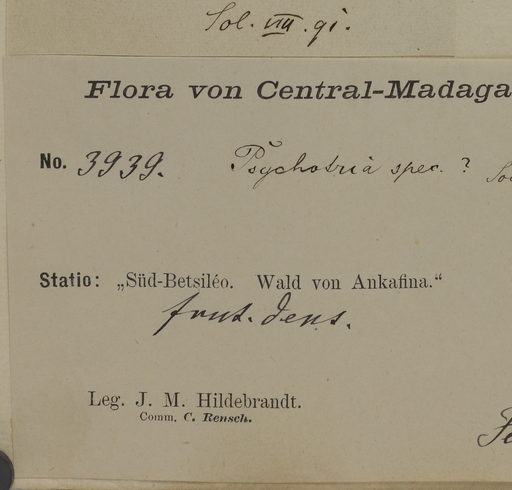 Sol. VIII. 91.
Flora von Central-Madaga
No. 3939. Psychotria spec. ?
Statio: „Süd-Betsiléo. Wald von Ankafina.“
frut. dens.
Leg. J. M. Hildebrandt.
Comm. C. Rensch.